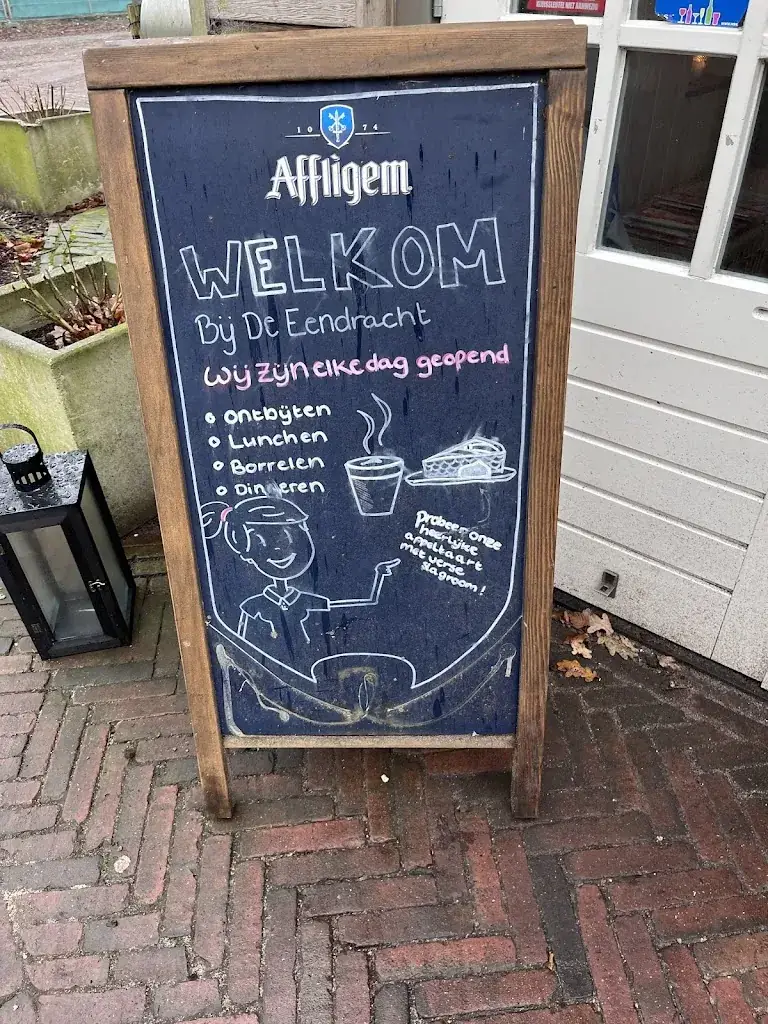 10 74
Affligem
WELKOM
Bij De Eendracht
Wij zijn elke dag geopend
Ontbijten
Lunchen
Borrelen
Dineren
Probeer onze
heerlijke
appeltaart
met verse
slagroom!